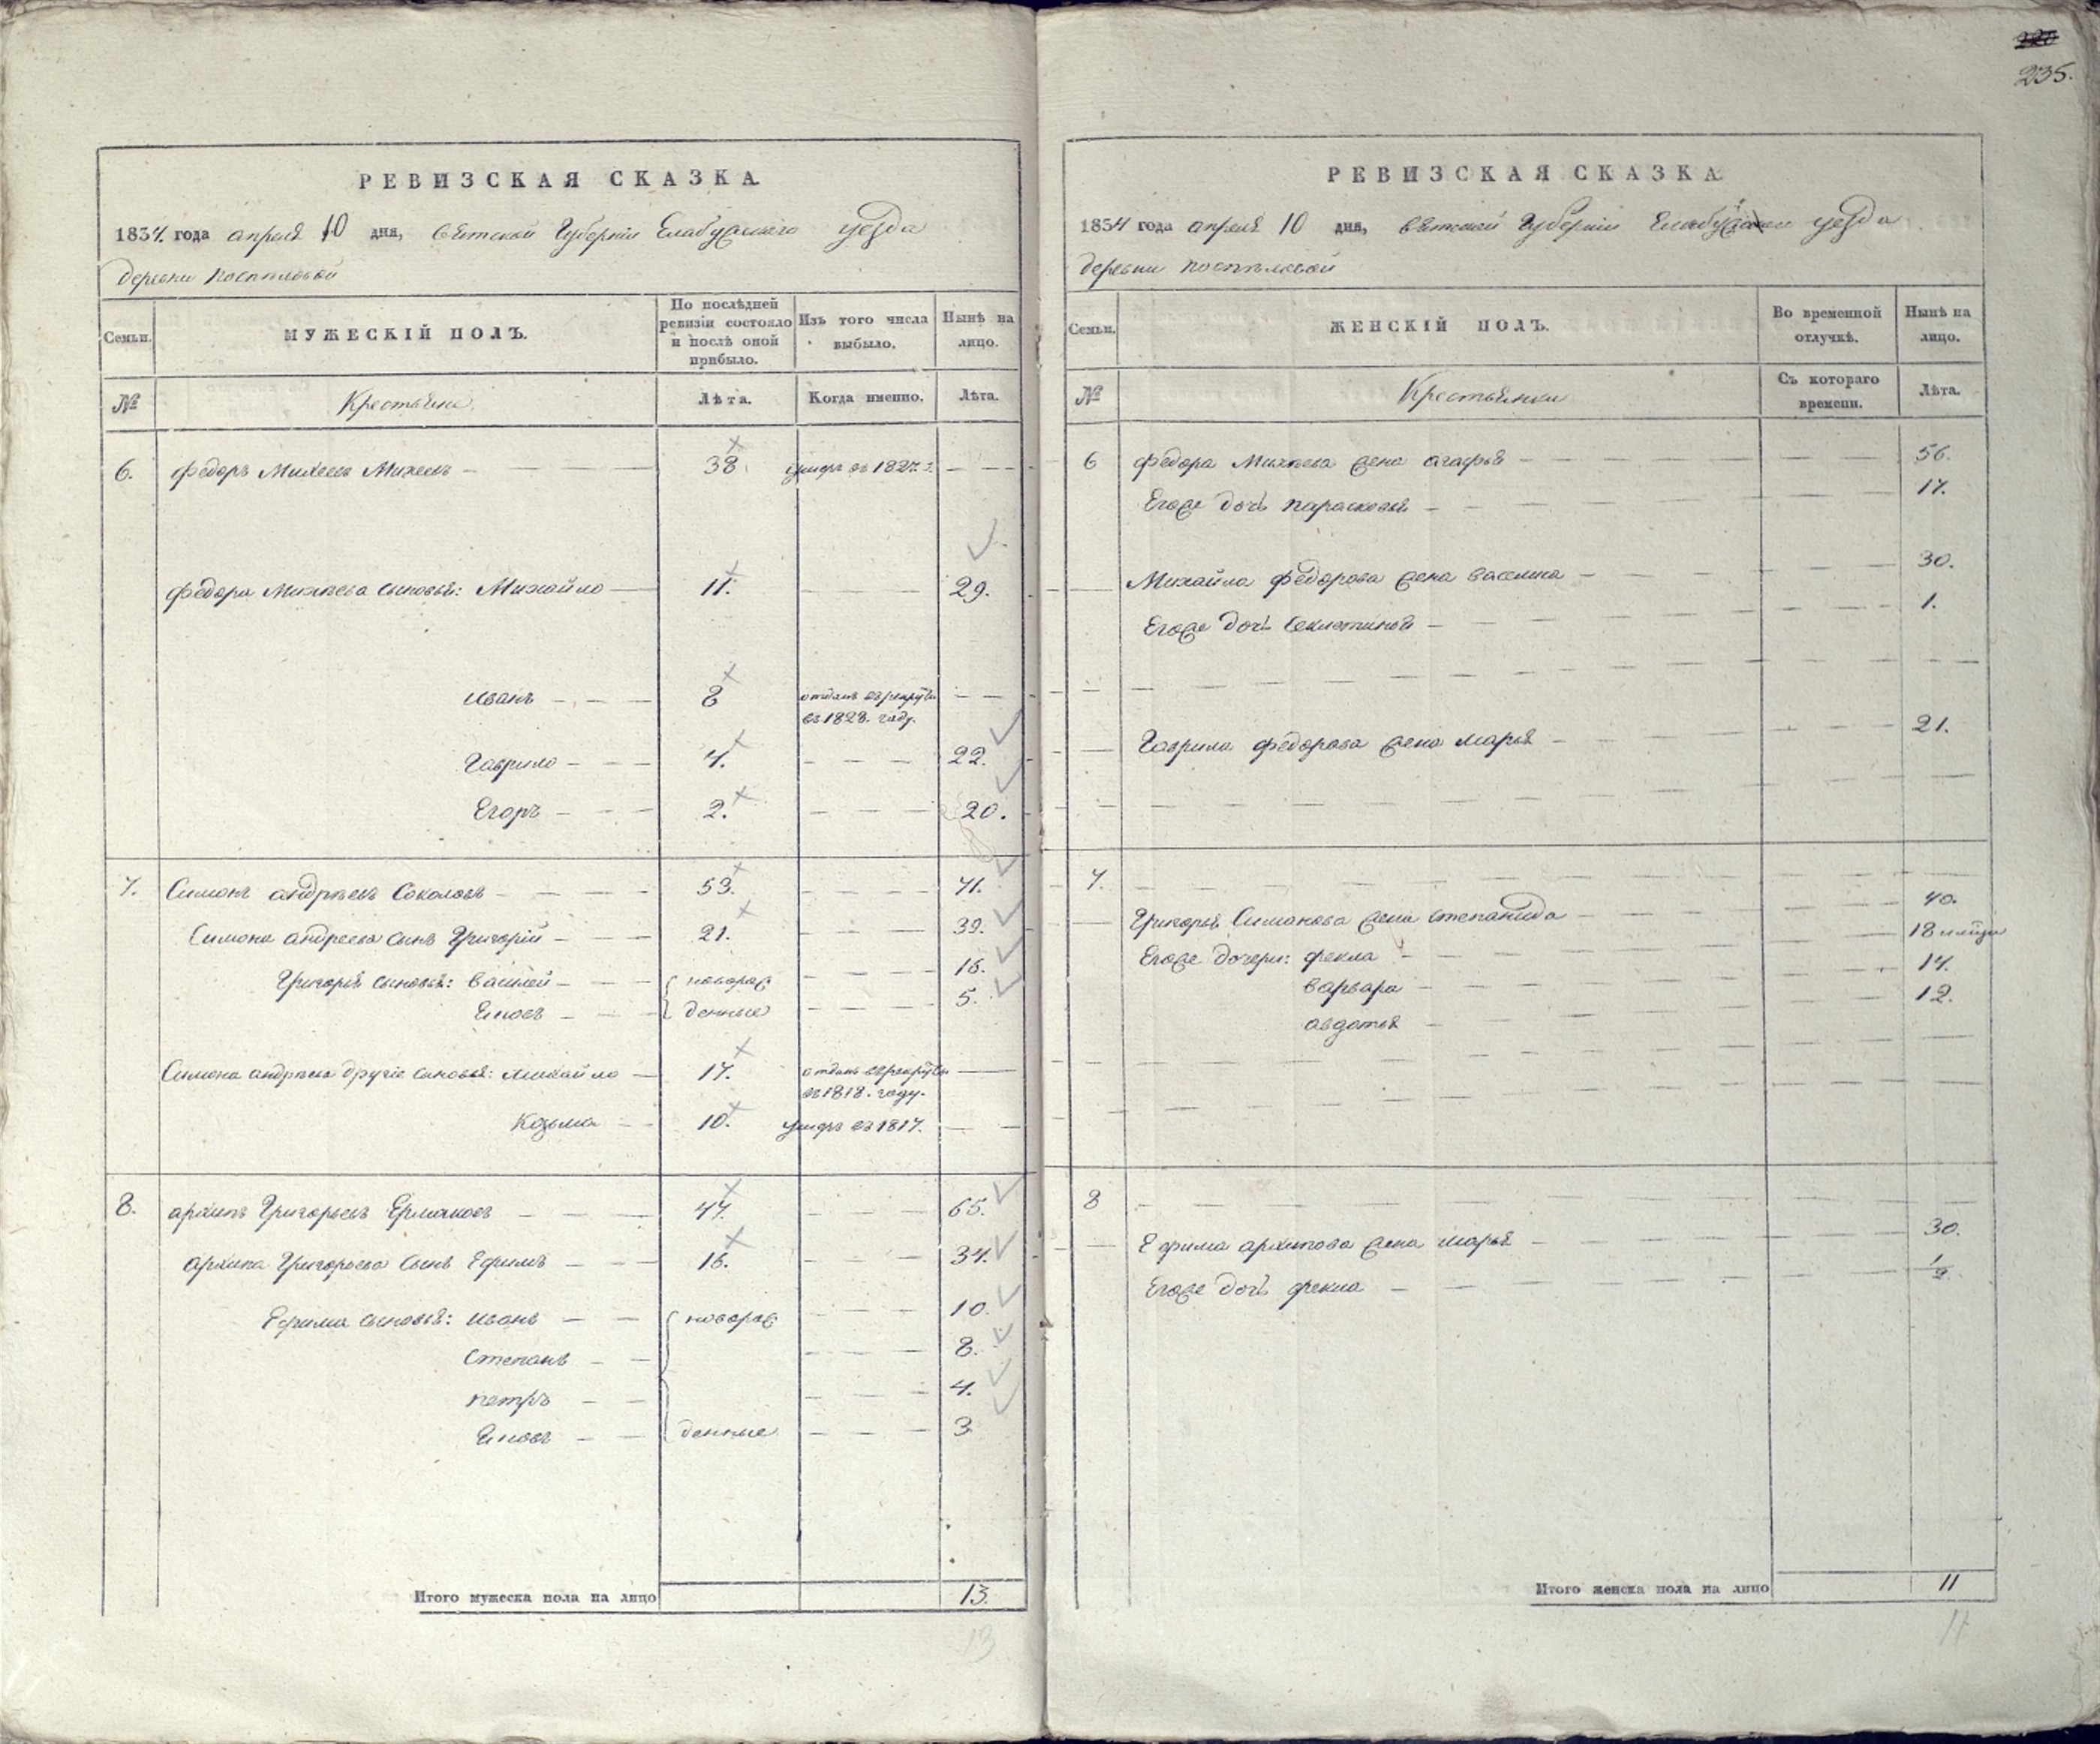 235.
РЕВИЗСКАЯ СКАЗКА
1834 года апреля 10 дня, вятской Губернии Елабужскаго уезда
деревни поспѣловой
Семьи.
МУЖЕСКІЙ ПОЛЪ.
По послѣдней ревизіи состояло и послѣ оной прибыло.
Изъ того числа выбыло.
Нынѣ на лицо.
№
Крестьяне.
Лѣта.
Когда именно.
Лѣта.
6. федоръ Михеевъ Михеевъ 38. умеръ въ 1827. г.
федора Михѣева сыновья: Михайло 11. 29.
иванъ 8 отданъ въ рекруты
въ 1828. году.
Гаврило 4. 22.
Егоръ 2. 20.
7. Симонъ андрѣевъ Соколовъ 53. 71.
Симона андреева сынъ Григорій 21. 39.
Григорья сыновья: василей новорож 16.
денные 5.
Симона андрѣева другіе сыновья: михайло 17. отданъ въ рекруты
въ 1818. году.
Козьма 10. умеръ въ 1817.
8. архипъ Григорьевъ Ермаковъ 47. 65.
архипа Григорьева сынъ Ефимъ 16. 34.
Ефима сыновья: иванъ новорож 10.
Степанъ 8.
петръ 4.
денные 3
Итого мужеска пола на лицо 13.
13
РЕВИЗСКАЯ СКАЗКА
1834 года апреля 10 дня, вятской Губернии уезда
деревни поспѣловой
Семьи.
ЖЕНСКІЙ ПОЛЪ.
Во временной отлучкѣ.
Нынѣ на лицо.
№
Крестьянки
Съ котораго времени.
Лѣта.
6 федора Михѣева жена агафья 56.
Егоже дочь парасковья 17.
Михайла федорова жена василиса 30.
Егоже дочь 1.
Гаврила федорова жена марья 21.
7.
Григорья Симонова жена степанида 40.
Егоже дочери: фекла 18
варвара 14.
авдотья 12.
8
Ефима архипова жена марья 30.
Егоже дочь фекла 1/2
Итого женска пола на лицо 11
11